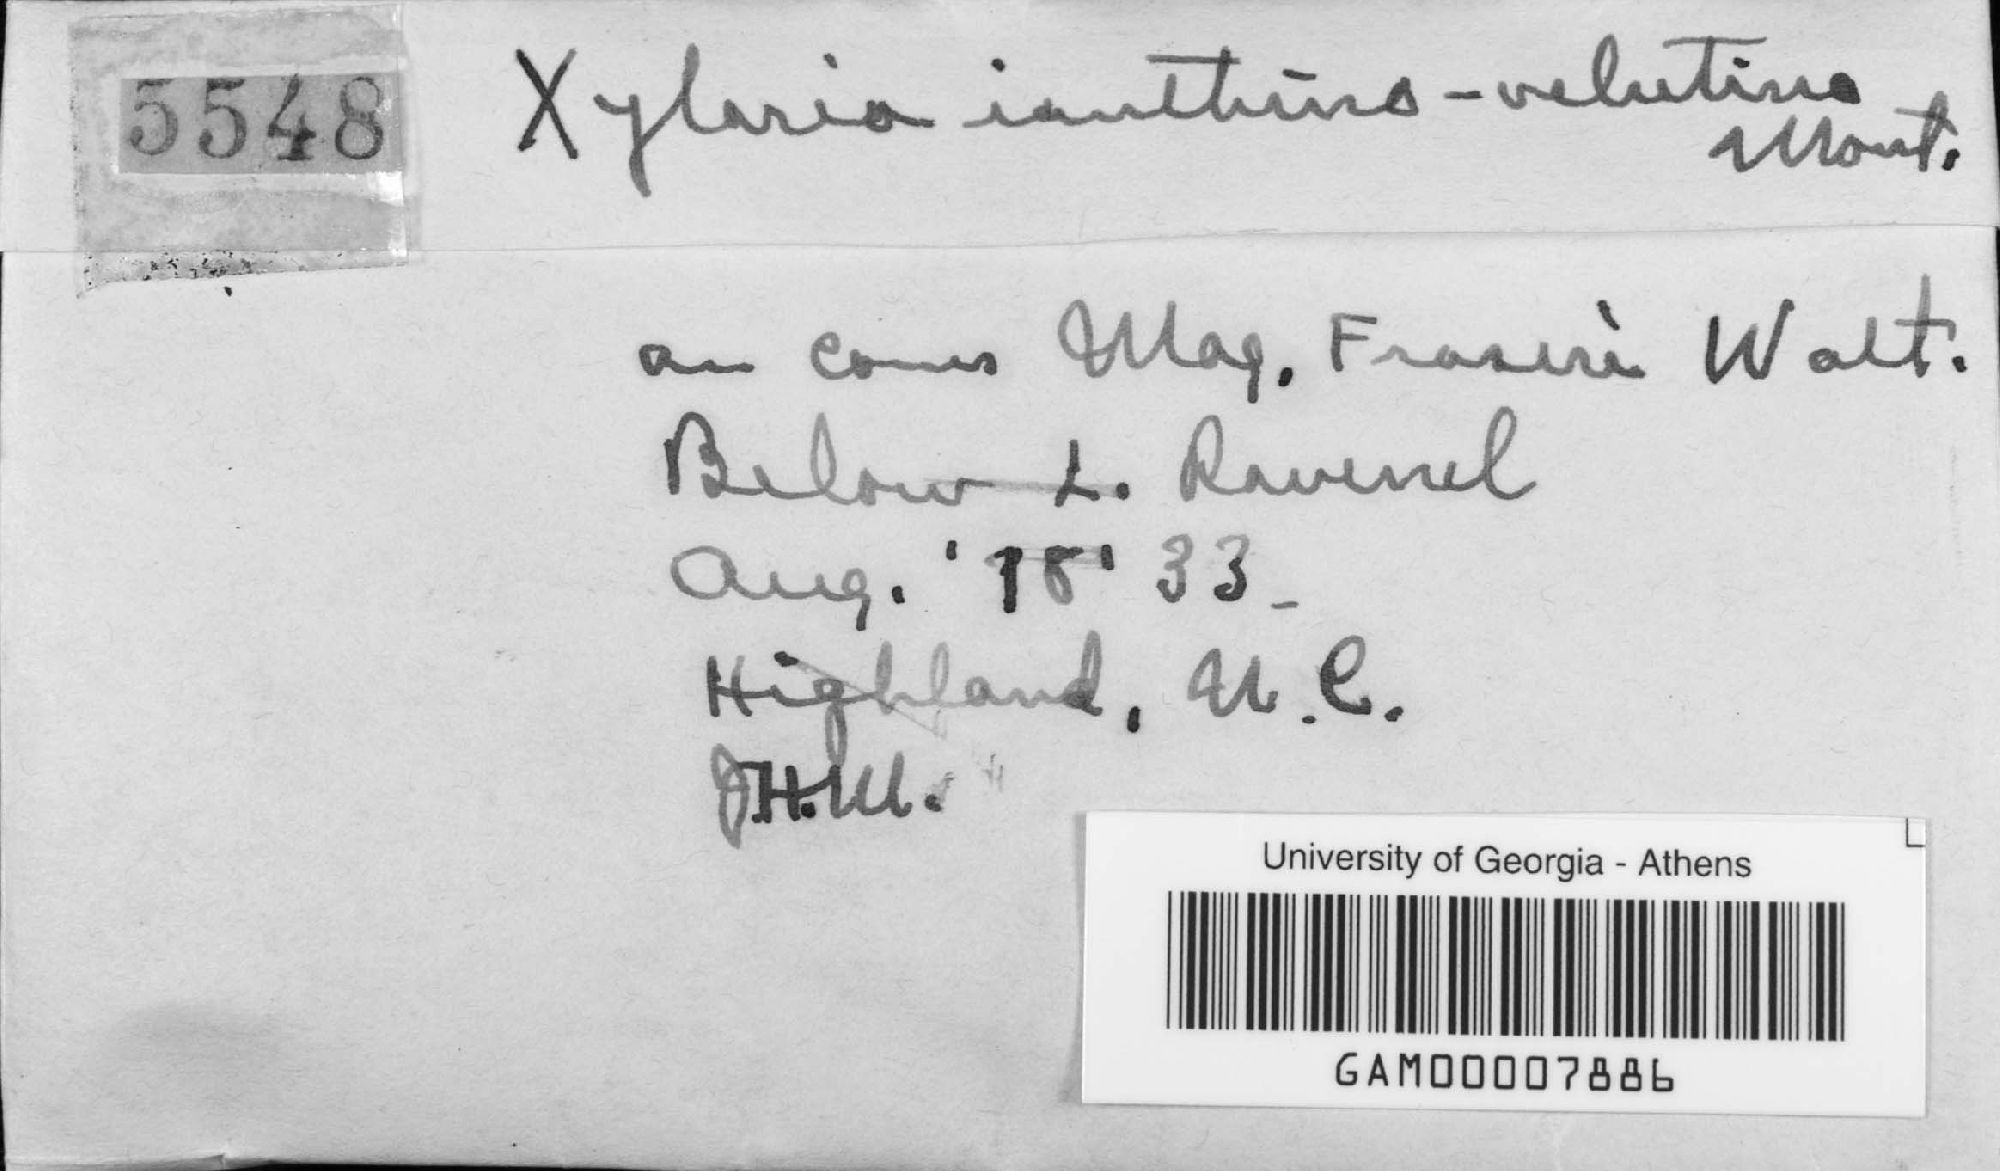 5548
Xylaria ianthino-velutina
Mont.
on cones Mag. Fraseri Walt.
Below L. Ravenel
Aug. '18' 33
Highland, N.C.
J.H.M.
University of Georgia - Athens
GAM00007886